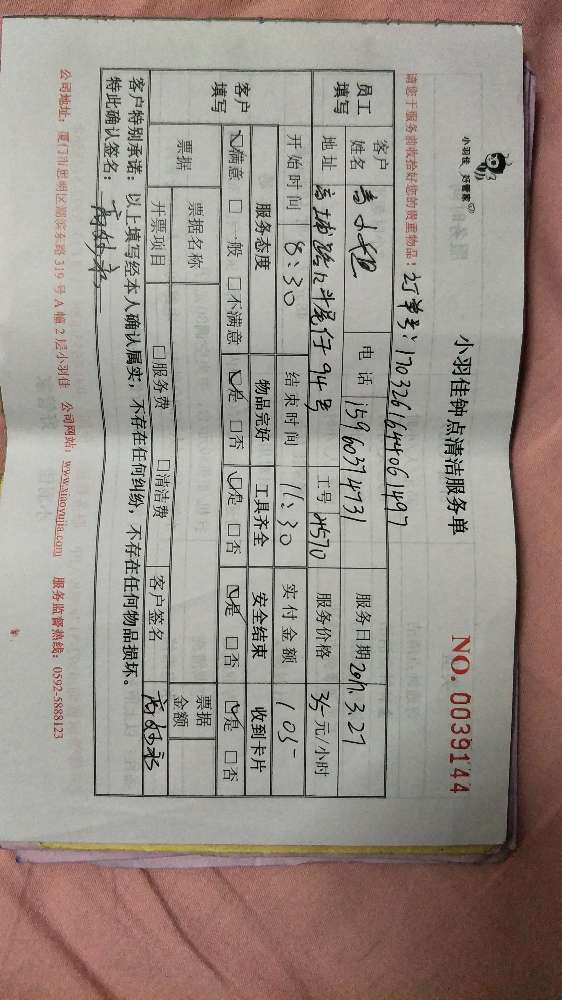 小羽佳 好管家
小羽佳钟点清洁服务单
NO. 0039144
请您于服务前收拾好您的贵重物品！订单号：1703261644061497
员工填写
客户姓名 小姐 电话 15960374731 服务日期 2017.3.27
地址 94号 工号 4570 服务价格 35元/小时
客户填写
开始时间 8:30 结束时间 11:30 实付金额 105
服务态度 物品完好 工具齐全 安全结束 收到卡片
☑满意 □一般 □不满意 ☑是 □否 ☑是 □否 ☑是 □否 ☑是 □否
票据 票据名称 票据金额
开票项目 □服务费 □清洁费 客户签名
客户特别承诺：以上填写经本人确认属实，不存在任何纠纷，不存在任何物品损坏。
特此确认签名：
公司地址：厦门市思明区湖滨东路319号A幢2层小羽佳 公司网站：www.xiaoyujia.com 服务监督热线：0592-5888123